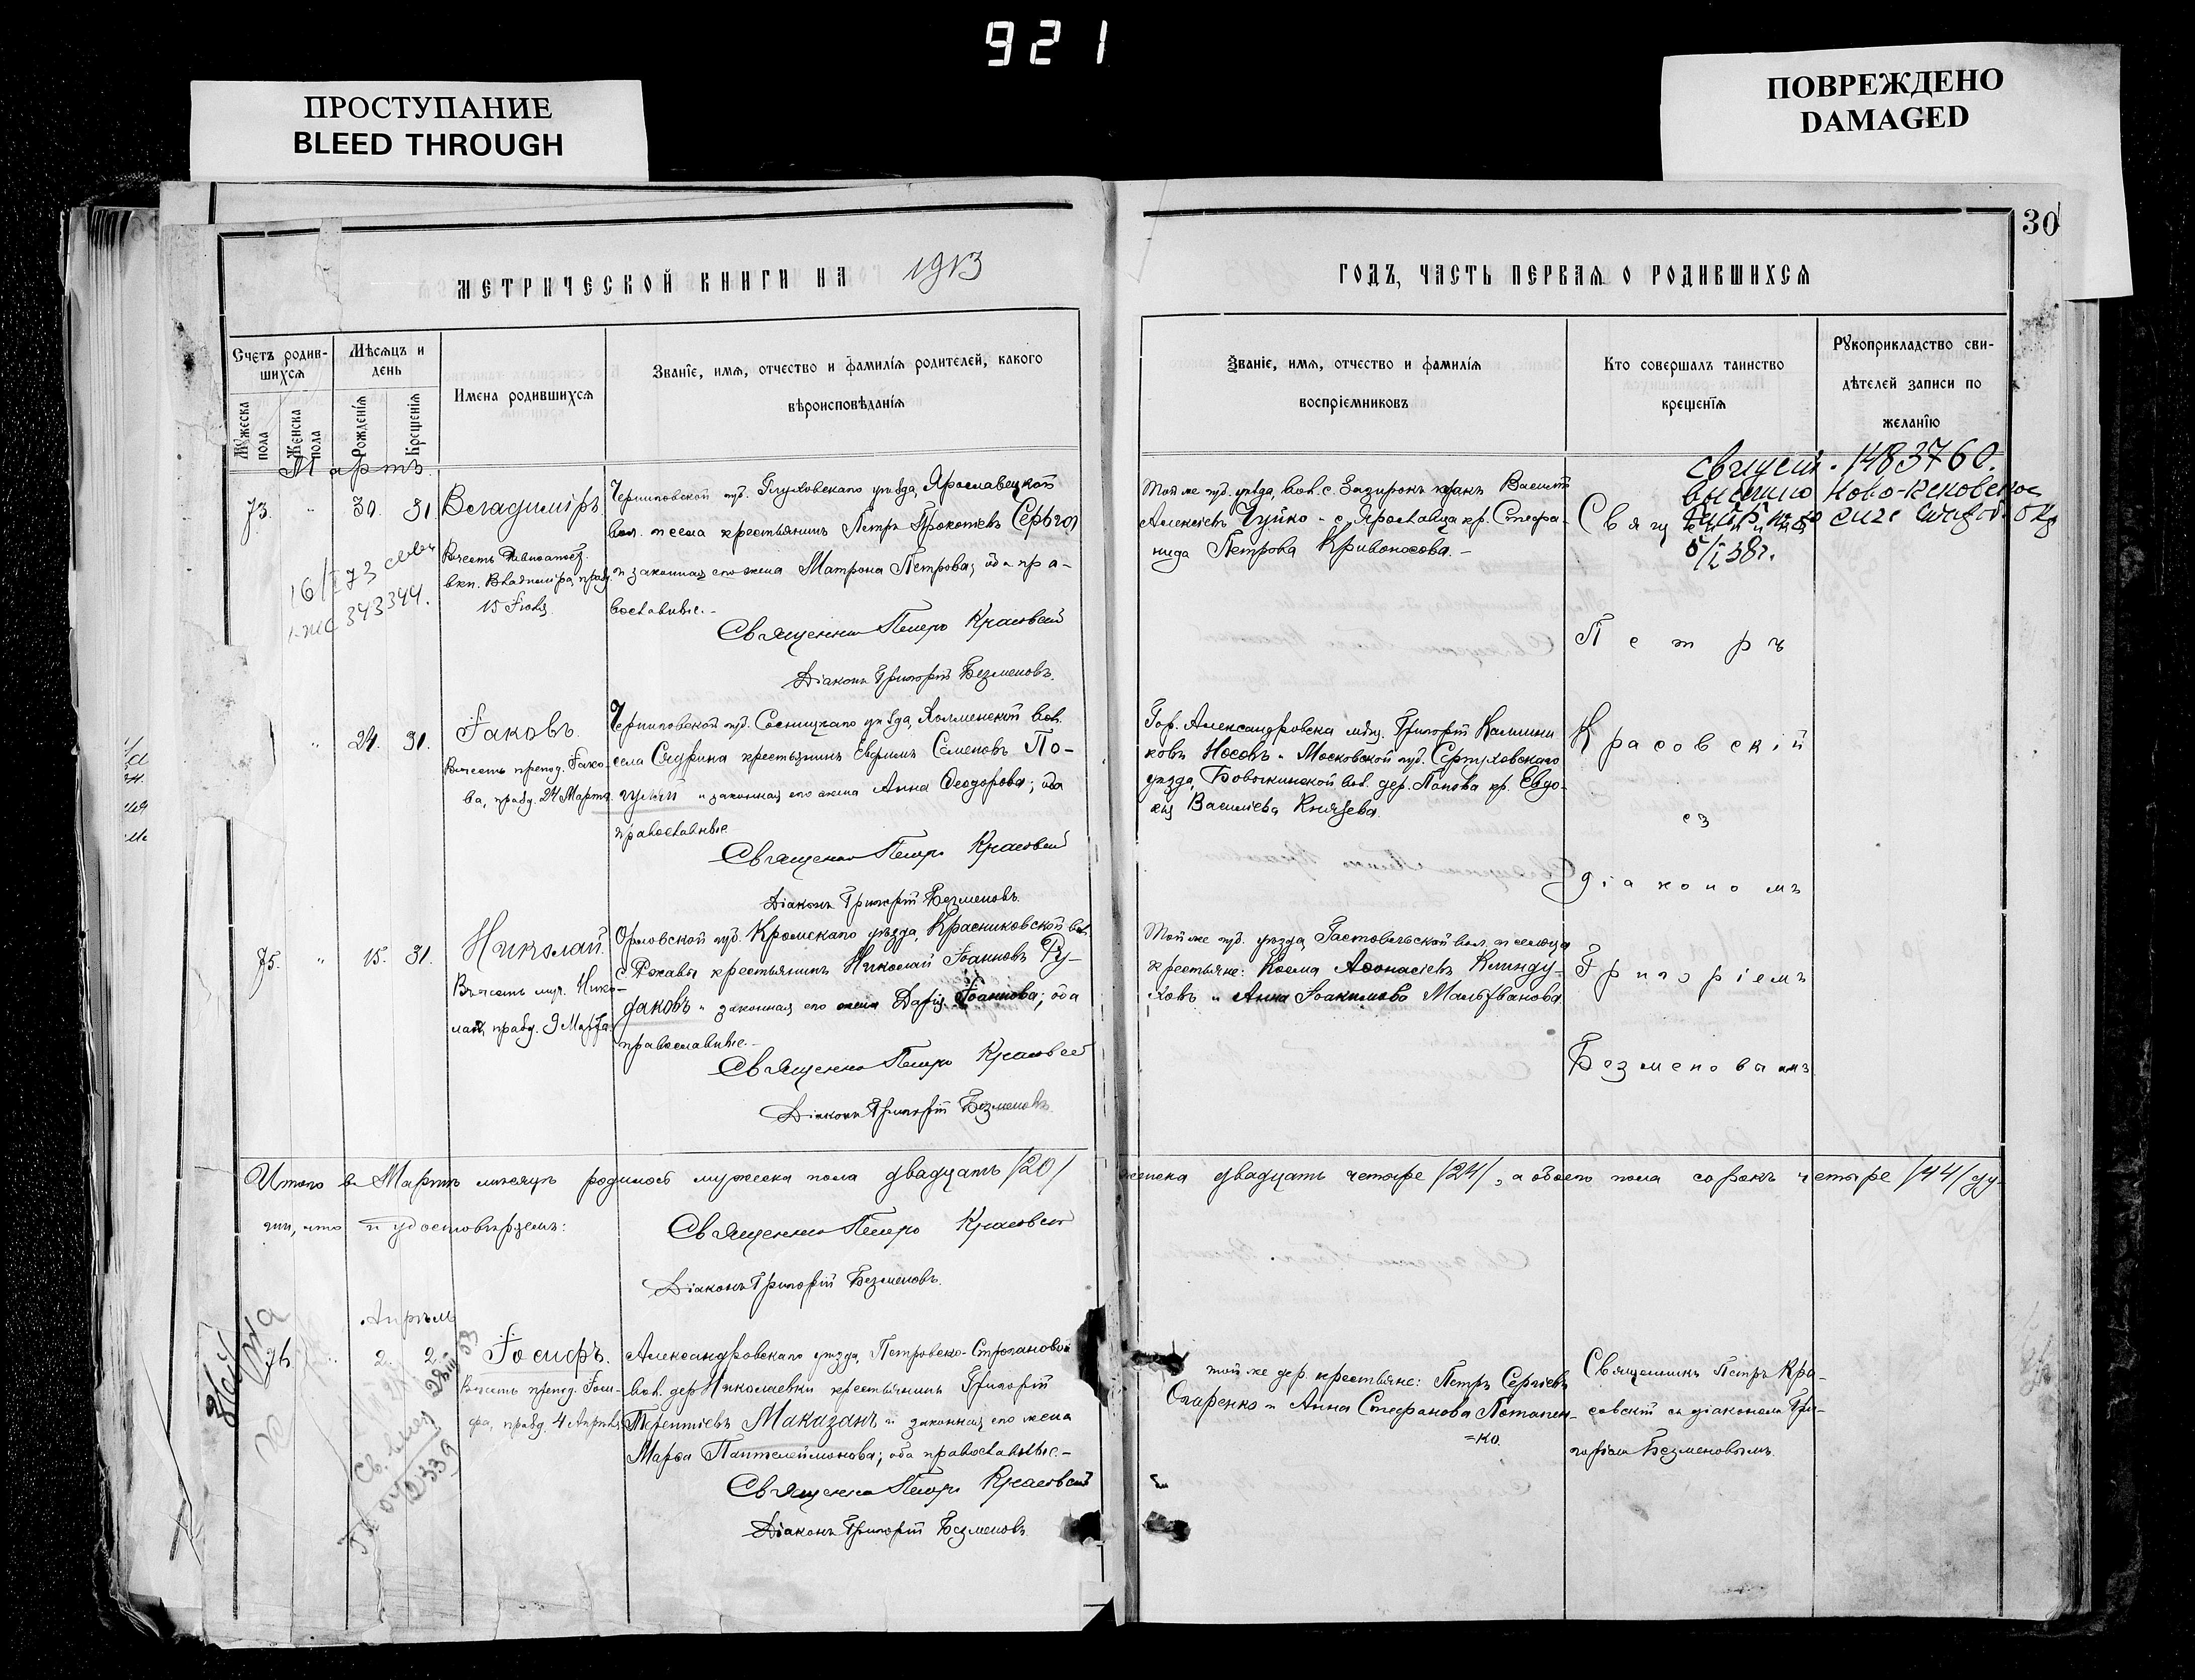 921
ПРОСТУПАНИЕ
BLEED THROUGH
ПОВРЕЖДЕНО
DAMAGED
30
МЕТРИЧЕСКОЙ КНИГИ НА 1913
ГОДЪ, ЧАСТЬ ПЕРВАЯ О РОДИВШИХСЯ
Счетъ родив-
шихся
Мѣсяцъ и
день
Мужеска
пола
Женска
пола
Рожденія
Крещенія
Имена родившихся
Званіе, имя, отчество и фамилія родителей, какого
вѣроисповѣданія
Званіе, имя, отчество и фамилія
воспріемниковъ
Кто совершалъ таинство
крещенія
Рукоприкладство сви-
дѣтелей записи по
желанію
Мартъ
73. " 30. 31.
Владиміръ
вкн. Владиміра, празд.
15 Іюля.
Черниговской губ. Глуховскаго уѣзда, Ярославецкой
вол. и села крестьянинъ Петръ Прокопіевъ Серьгол
и законная его жена Матрона Петрова; оба пра-
вославные.-
Священникъ Петръ Красовскій
Діаконъ Григорій Безменовъ.
Той же губ. уѣзда, вол. с. крест. Василій
Алексіевъ Чуйко и с. Ярославца кр. Стефа-
нида Петрова Кривоносова.-
Священникъ
Петръ
Красовскій
съ
діакономъ
Григоріемъ
Безменовымъ
свидет. 148376
5/I 38г.
343344.
" 24. 31.
Іаковъ.
Въ честь препод. Іако-
ва, празд. 24 Марта.
Черниговской губ. Сосницкаго уѣзда, Холменской вол.
села Сядрина крестьянинъ Евфимъ Семеновъ По-
и законная его жена Анна Ѳеодорова; оба
православные
Священникъ Петръ Красовскій
Діаконъ Григорій Безменовъ.
Гор. Александровска мѣщ. Григорій Калинни-
ковъ Носовъ и Московской губ. Серпуховскаго
уѣзда, Бовыкинской вол. дер. Попова кр. Евдо-
кія Василіева Князева.
75. " 15. 31.
Николай.
Въ честь муч. Нико-
лая, празд. 9 Марта.
Орловской губ. Кромскаго уѣзда, Красниковской вол.
с. Ржавы крестьянинъ Николай Іоанновъ Ру-
даковъ и законная его жена Дарія Іоаннова; оба
православные.-
Священникъ Петръ Красовскій
Діаконъ Григорій Безменовъ.
Той же губ. уѣзда, вол. и сельца
крестьяне: Косма Аѳонасіевъ Клинду-
ховъ и Анна Іоакимова
Итого въ Мартѣ мѣсяцѣ родилось мужеска пола двадцать /20/
женска двадцать четыре /24/, а обоего пола сорокъ четыре /44/ ду-
ши, что и удостовѣряемъ:
Священникъ Петръ Красовскій
Діаконъ Григорій Безменовъ.
Апрѣль
76. " 2. 2.
Іосифъ.
Въ честь препод. Іоси-
фа, празд. 4 Апрѣля
Александровскаго уѣзда, Петровско-
вол. дер. Николаевки крестьянинъ Григорій
Терентіевъ Маказанъ и законная его жена
Марѳа Пантелеймонова; оба православные.-
Священникъ Петръ Красовскій
Діаконъ Григорій Безменовъ
той же дер. крестьяне: Петръ Сергіевъ
Опаренко и Анна Стефанова Потапен-
=ко.
Священникъ Петръ Кра-
совскій съ діакономъ Гри-
горіемъ Безменовымъ.